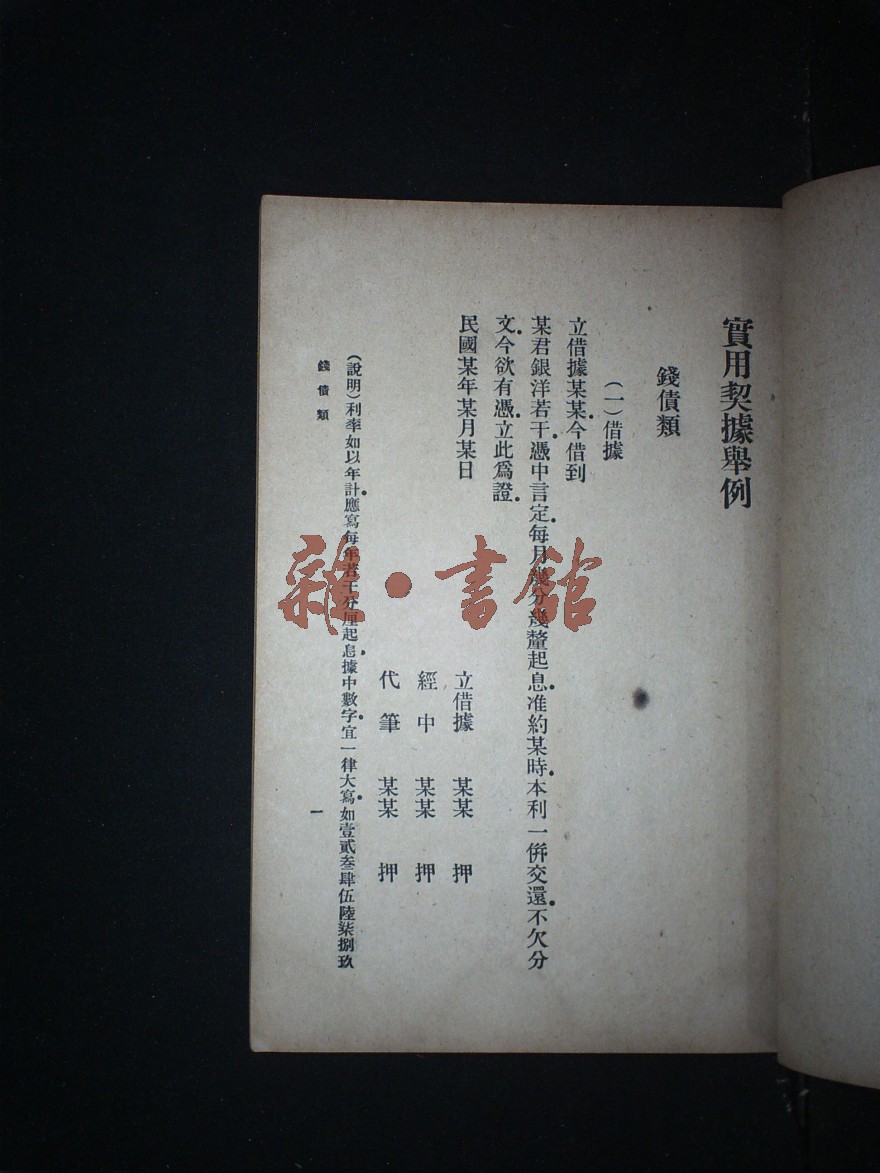 實用契據舉例
錢債類
(一)借據
立借據某某.今借到
某君銀洋若干.憑中言定.每月幾分幾釐起息.准約某時.本利一併交還.不欠分
文.今欲有憑.立此爲證.
民國某年某月某日
立借據 某某 押
經中 某某 押
代筆 某某 押
(說明)利率如以年計.應寫每年若干分厘起息.據中數字.宜一律大寫.如壹貳叁肆伍陸柒捌玖
錢債類
一
雜·書館